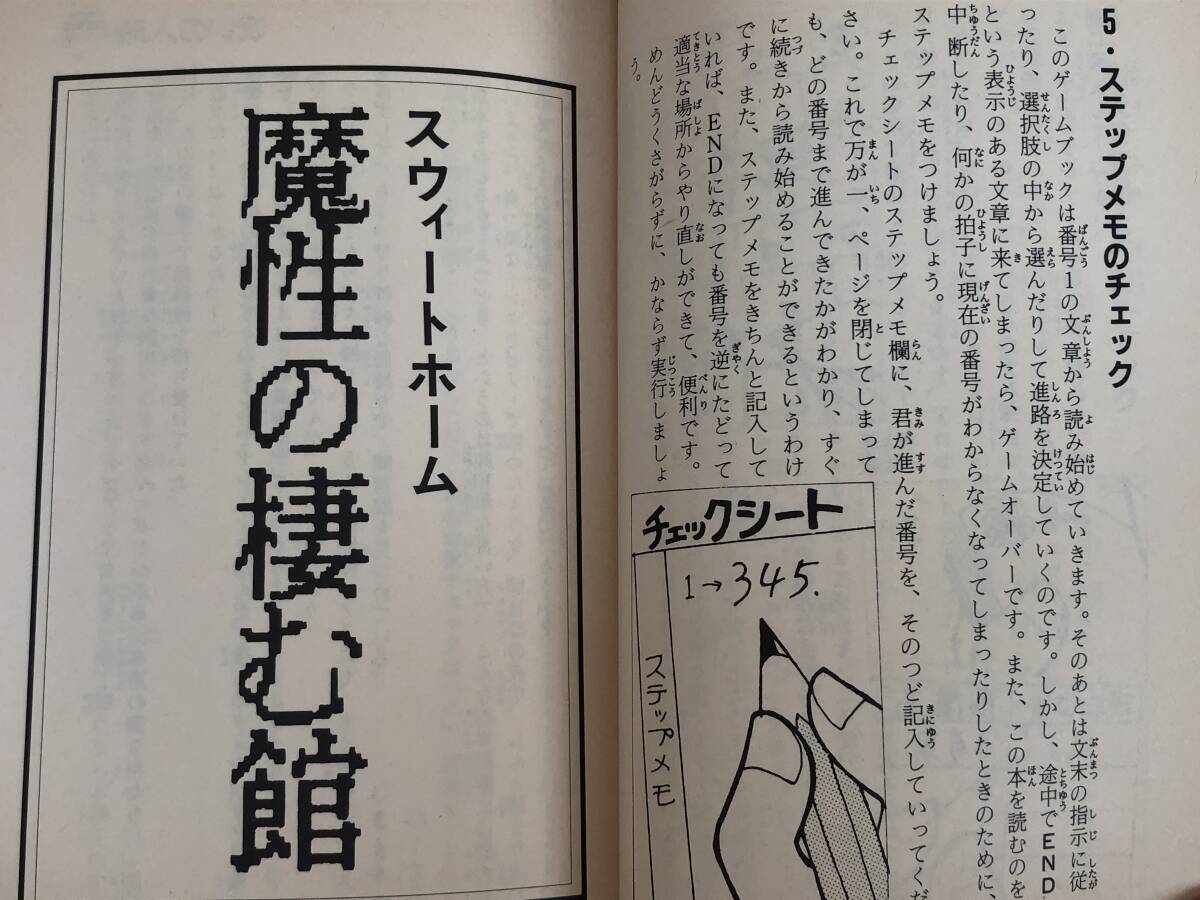 5・ステップメモのチェック
このゲームブックは番号1の文章から読み始めていきます。そのあとは文末の指示に従
ったり、選択肢の中から選んだりして進路を決定していくのです。しかし、途中でEND
という表示のある文章に来てしまったら、ゲームオーバーです。また、この本を読むのを
中断したり、何かの拍子に現在の番号がわからなくなってしまったりしたときのために、
ステップメモをつけましょう。
チェックシートのステップメモ欄に、君が進んだ番号を、そのつど記入していってくだ
さい。これで万が一、ページを閉じてしまって
も、どの番号まで進んできたかがわかり、すぐ
に続きから読み始めることができるというわけ
です。また、ステップメモをきちんと記入して
いれば、ENDになっても番号を逆にたどって
適当な場所からやり直しができて、便利です。
めんどうくさがらずに、かならず実行しましょ
う。
チェックシート
1→345.
ステップメモ
スウィートホーム
魔性の棲む館